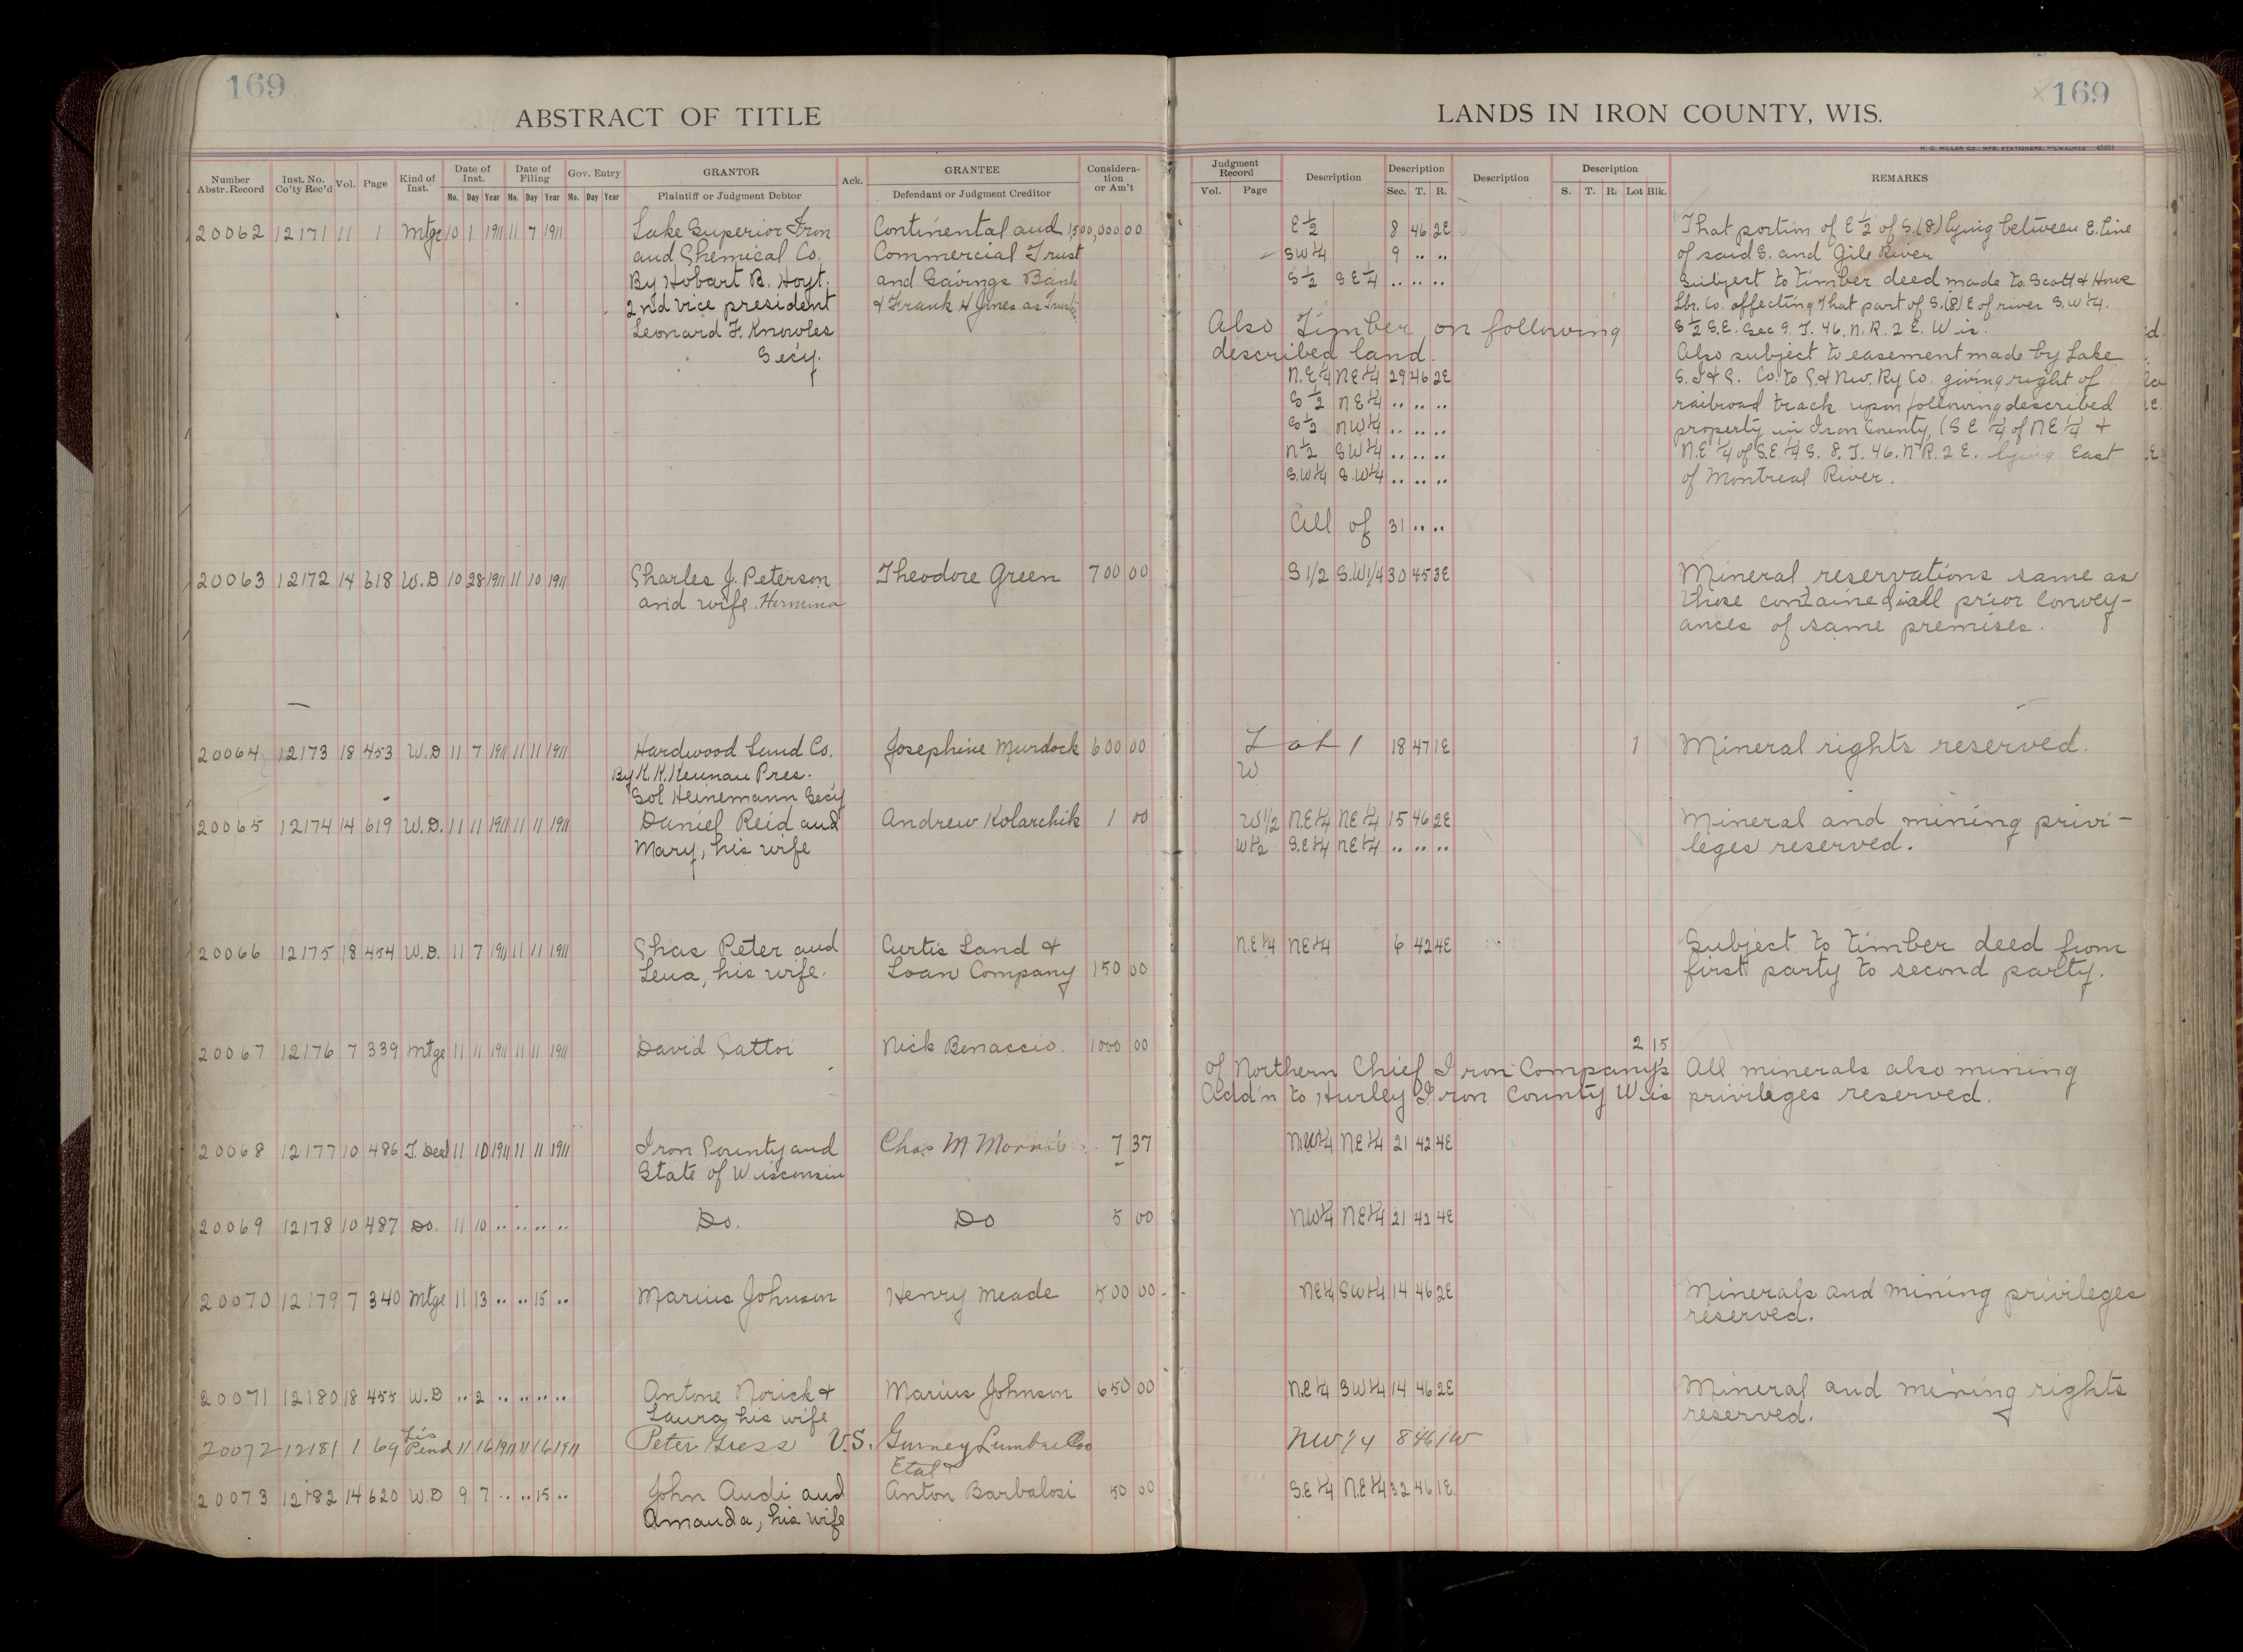 169
ABSTRACT OF TITLE
Number Abstr. Record | Inst. No. Co'ty Rec'd | Vol. | Page | Kind of Inst. | Date of Inst. Mo. Day Year | Date of Filing Mo. Day Year | Gov. Entry Mo. Day Year | GRANTOR Plaintiff or Judgment Debtor | Ack. | GRANTEE Defendant or Judgment Creditor | Consideration or Am't
20062 12171 11 1 Mtge 10 1 1911 11 7 1911 Lake Superior Iron Continental and 1,500,000 00
and Chemical Co. Commercial Trust
By Hobart B. Hoyt. and Savings Bank
2nd vice president & Frank H Jones as Trustee
Leonard F. Knowles
Secy.
20063 12172 14 618 W.D 10 28 1911 11 10 1911 Charles J. Peterson Theodore Green 700 00
and wife Hermina
20064 12173 18 453 W.D 11 7 1911 11 11 1911 Hardwood Land Co. Josephine Murdock 600 00
By K.K. Kennan Pres.
Sol Heinemann Secy
20065 12174 14 619 W.D. 11 11 1911 11 11 1911 Daniel Reid and Andrew Kolarchik 1 00
Mary, his wife
20066 12175 18 454 W.D. 11 7 1911 11 11 1911 Chas Peter and Curtis Land &
Lena, his wife. Loan Company 150 00
20067 12176 7 339 Mtge 11 11 1911 11 11 1911 David Cattoi Nick Benaccio. 1000 00
20068 12177 10 486 T. Deed 11 10 1911 11 11 1911 Iron County and Chas M Morris 7 37
State of Wisconsin
20069 12178 10 487 Do. 11 10 .. .. .. .. Do. Do 5 00
20070 12179 7 340 Mtge 11 13 .. .. 15 .. Marius Johnson Henry Meade 500 00
20071 12180 18 455 W.D .. 2 .. .. .. .. Antone Norick & Marius Johnson 650 00
Laura, his wife
20072 12181 1 69 Lis Pend 11 16 1911 11 16 1911 Peter Gress V.S. Gurney Lumber Co
Etal
20073 12182 14 620 W.D 9 7 .. .. 15 .. John Audi and Anton Barbalosi 50 00
Amanda, his wife
169
LANDS IN IRON COUNTY, WIS.
H. C. MILLER CO., MFG. STATIONERS, MILWAUKEE
Judgment Record Vol. Page | Description | Description Sec. T. R. | Description | Description S. T. R. Lot Blk. | REMARKS
E 1/2 8 46 2E That portion of E 1/2 of S.(8) lying between E. line
SW 1/4 9 .. .. of said S. and Gile River
S 1/2 SE 1/4 .. .. .. Subject to timber deed made to Scott & Howe
Lbr. Co. affecting that part of S.(8) E of river S.W 1/4.
Also Timber on following S 1/2 S.E. Sec 9. T. 46. N. R. 2 E. Wis.
described land. Also subject to easement made by Lake
N.E 1/4 NE 1/4 29 46 2E S. I & C. Co. to C. & N.W. Ry Co. giving right of
S 1/2 NE 1/4 .. .. .. railroad track upon following described
S 1/2 NW 1/4 .. .. .. property in Iron County, (SE 1/4 of NE 1/4 &
N 1/2 SW 1/4 .. .. .. N.E 1/4 of S.E. 1/4 S. 8. T. 46. N R. 2 E. lying East
S.W 1/4 S.W 1/4 .. .. .. of Montreal River.
All of 31 .. ..
S 1/2 S.W 1/4 30 45 3E Mineral reservations same as
those contained in all prior convey-
ances of same premises.
Lot 1 18 47 1E 1 Mineral rights reserved.
W
W 1/2 N.E 1/4 NE 1/4 15 46 2E Mineral and mining privi-
W 1/2 S.E 1/4 NE 1/4 .. .. .. leges reserved.
N.E 1/4 NE 1/4 6 42 4E Subject to timber deed from
first party to second party.
2 15
of Northern Chief Iron Company's All minerals also mining
Add'n to Hurley Iron County Wis privileges reserved.
N.W 1/4 N.E 1/4 21 42 4E
N.W 1/4 N.E 1/4 21 42 4E
NE 1/4 SW 1/4 14 46 2E Minerals and mining privileges
reserved.
N.E 1/4 SW 1/4 14 46 2E Mineral and mining rights
reserved.
NW 1/4 8 46 1W
S.E 1/4 N.E 1/4 32 46 1E.